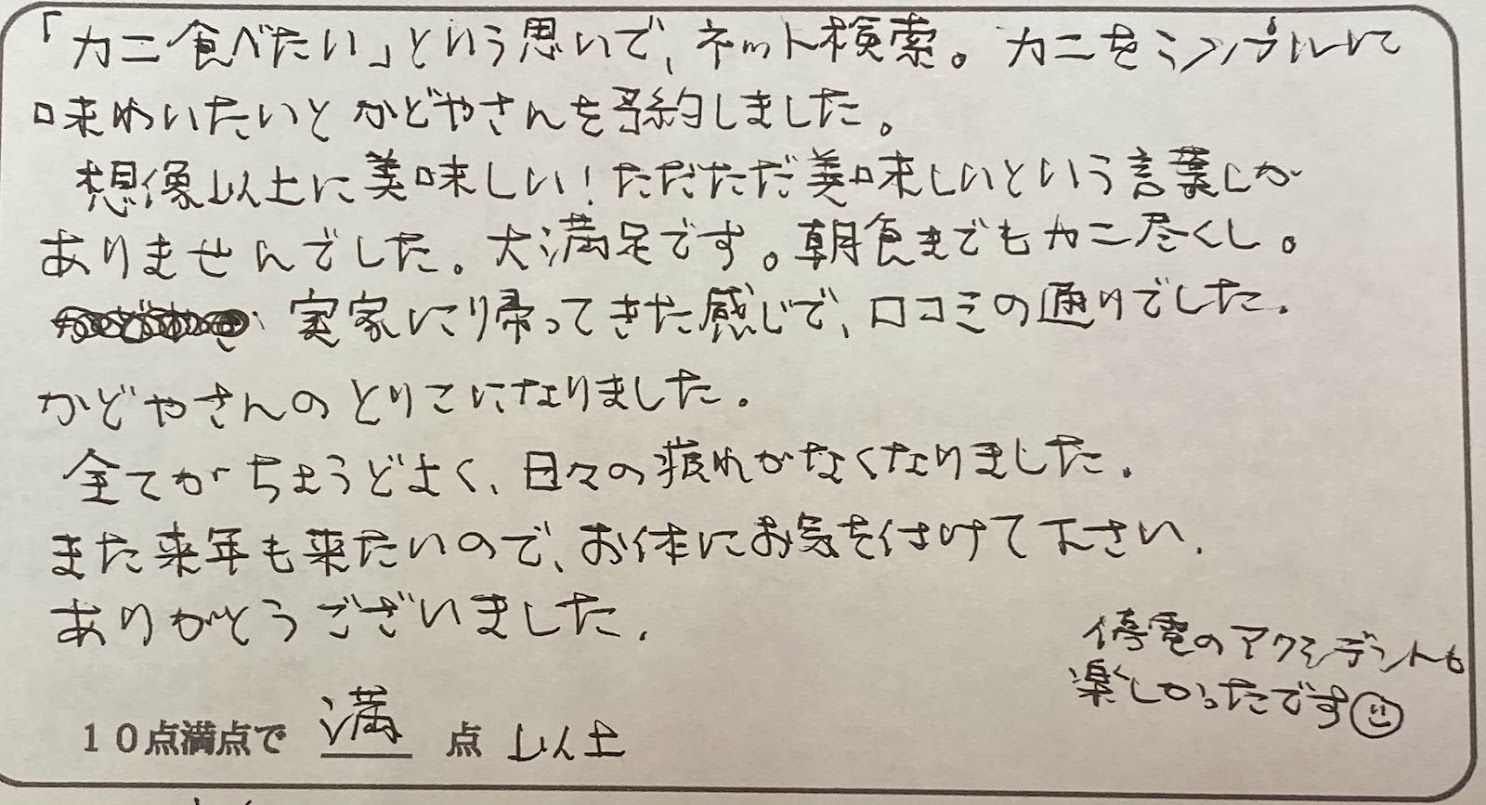 「カニ食べたい」という思いで、ネット検索。カニをシンプルに
味わいたいとかどやさんを予約しました。
想像以上に美味しい！ただただ美味しいという言葉しか
ありませんでした。大満足です。朝食までもカニ尽くし。
実家にり帰ってきた感じで、口コミの通りでした。
かどやさんのとりこになりました。
全てがちょうどよく、日々の疲れがなくなりました。
また来年も来たいので、お体にお気を付けて下さい。
ありがとうございました。
停電のアクシデントも
楽しかったです
10点満点で 満 点 以上